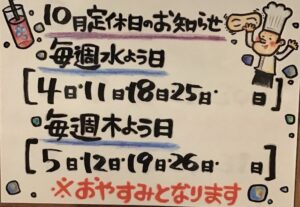 10月定休日のお知らせ
・毎週水よう日
[4日・11日・18日・25日・　日]
・毎週木よう日
[5日・12日・19日・26日・　日]
※おやすみとなります